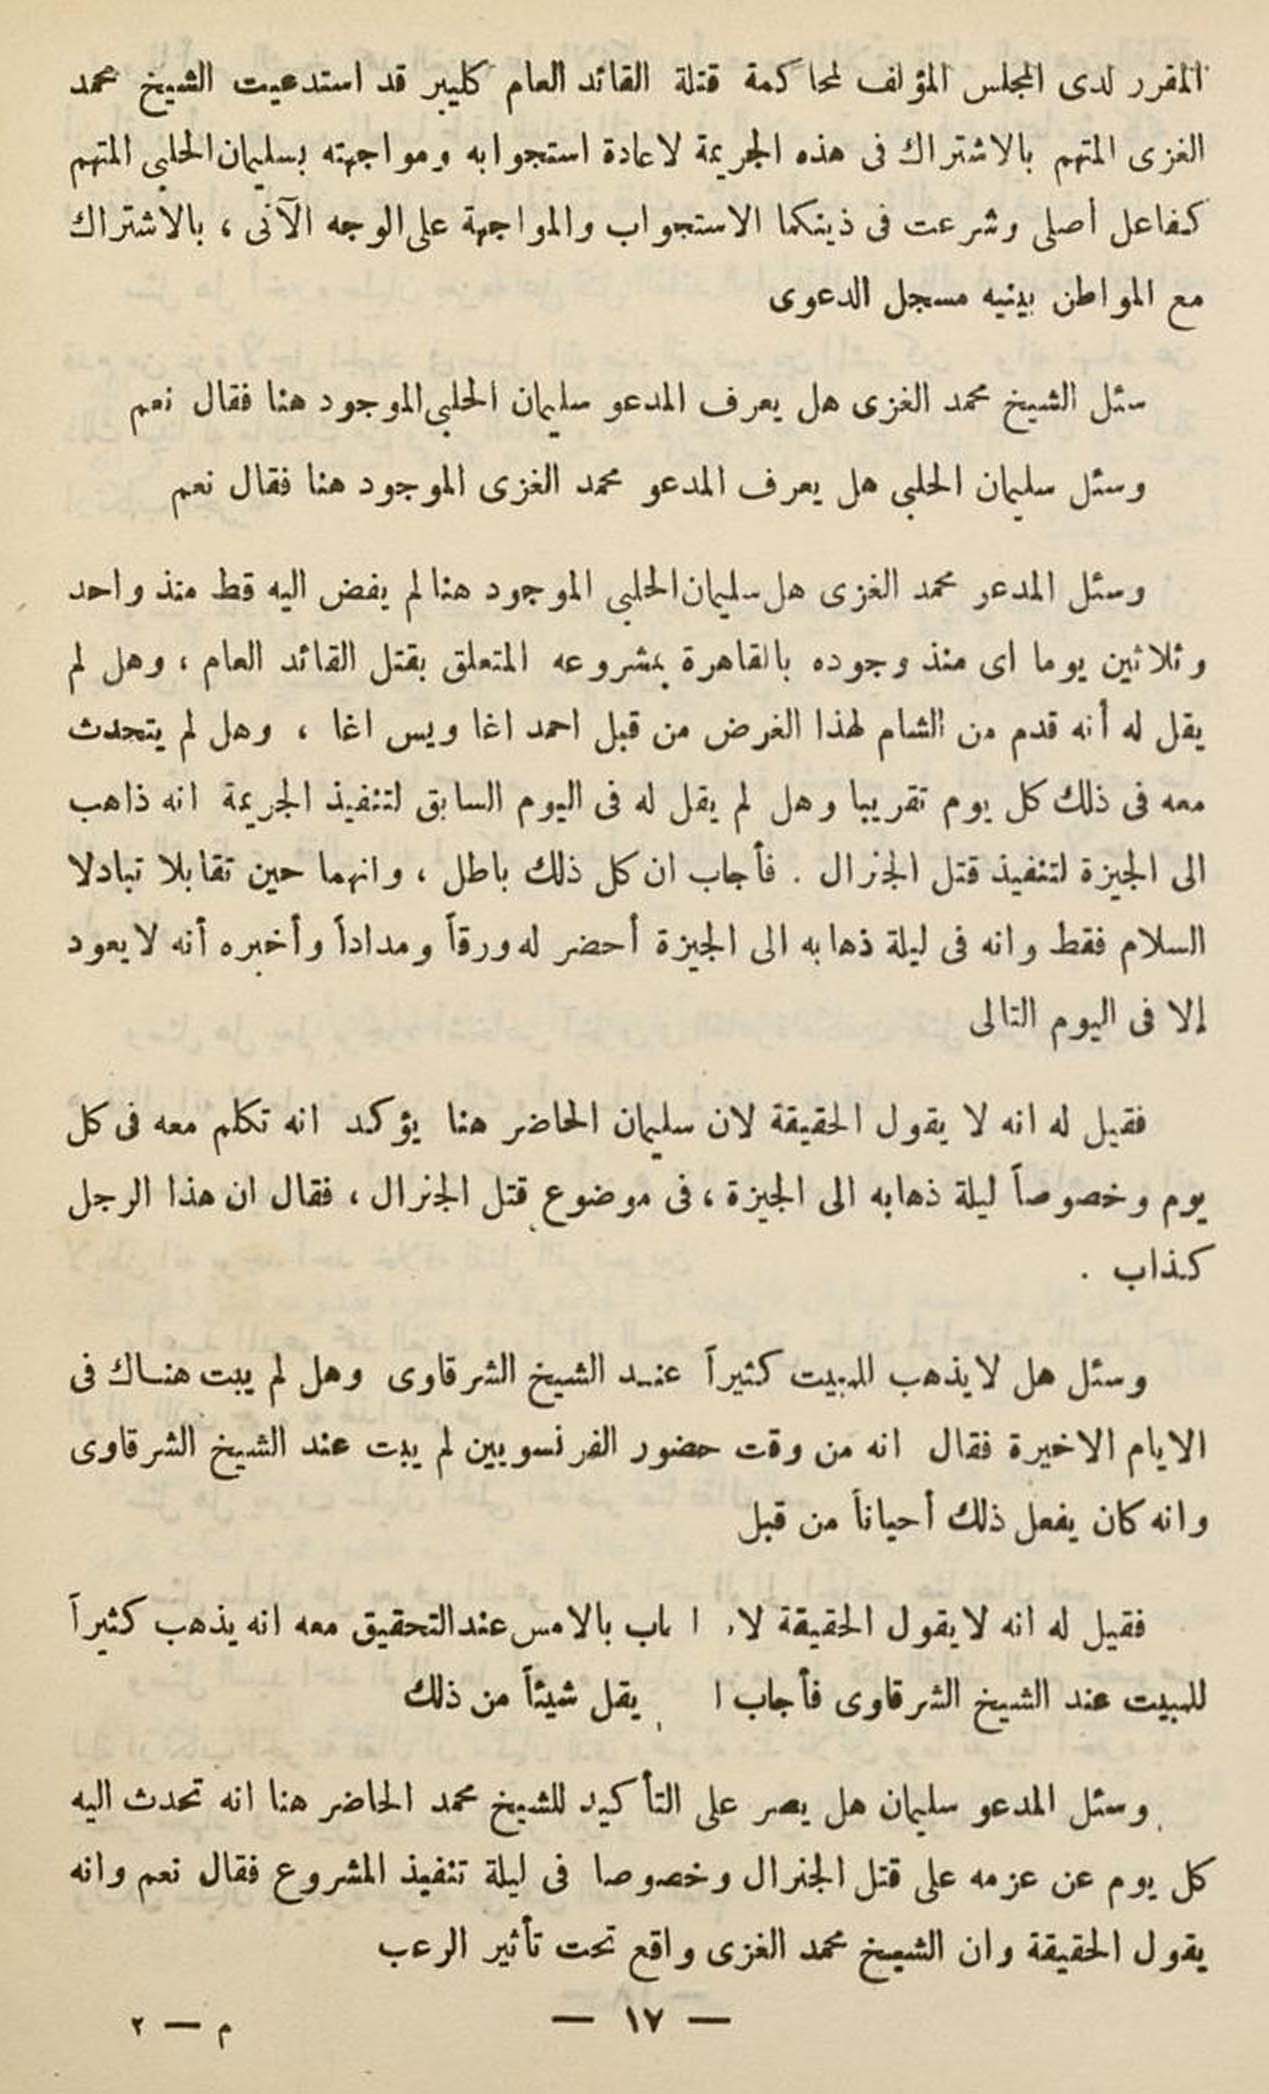 المقرر لدى المجلس المؤلف لمحاكمة قتلة القائد العام كليبر قد استدعيت الشيخ محمد
الغزى المتهم بالاشتراك فى هذه الجريمة لاعادة استجوابه ومواجهته بسليمان الحلبى المتهم
كفاعل أصلى وشرعت فى ذينكما الاستجواب والمواجهة على الوجه الآتى ، بالاشتراك
مع المواطن بينيه مسجل الدعوى
سئل الشيخ محمد الغزى هل يعرف المدعو سليمان الحلبى الموجود هنا فقال نعم
وسئل سليمان الحلبى هل يعرف المدعو محمد الغزى الموجود هنا فقال نعم
وسئل المدعو محمد الغزى هل سليمان الحلبى الموجود هنا لم يفض اليه قط منذ واحد
وثلاثين يوما اى منذ وجوده بالقاهرة بمشروعه المتعلق بقتل القائد العام ، وهل لم
يقل له أنه قدم من الشام لهذا الغرض من قبل احمد اغا ويس اغا ، وهل لم يتحدث
معه فى ذلك كل يوم تقريبا وهل لم يقل له فى اليوم السابق لتنفيذ الجريمة انه ذاهب
الى الجيزة لتنفيذ قتل الجنرال . فأجاب ان كل ذلك باطل ، وانهما حين تقابلا تبادلا
السلام فقط وانه فى ليلة ذهابه الى الجيزة أحضر له ورقاً ومداداً وأخبره أنه لا يعود
إلا فى اليوم التالى
فقيل له انه لا يقول الحقيقة لان سليمان الحاضر هنا يؤكد انه تكلم معه فى كل
يوم وخصوصاً ليلة ذهابه الى الجيزة ، فى موضوع قتل الجنرال ، فقال ان هذا الرجل
كذاب .
وسئل هل لا يذهب للمبيت كثيراً عند الشيخ الشرقاوى وهل لم يبت هناك فى
الايام الاخيرة فقال انه من وقت حضور الفرنسويين لم يبت عند الشيخ الشرقاوى
وانه كان يفعل ذلك أحياناً من قبل
فقيل له انه لا يقول الحقيقة بالامس عند التحقيق معه انه يذهب كثيراً
للمبيت عند الشيخ الشرقاوى فأجاب يقل شيئاً من ذلك
وسئل المدعو سليمان هل يصر على التأكيد للشيخ محمد الحاضر هنا انه تحدث اليه
كل يوم عن عزمه على قتل الجنرال وخصوصا فى ليلة تنفيذ المشروع فقال نعم وانه
يقول الحقيقة وان الشيخ محمد الغزى واقع تحت تأثير الرعب
— ١٧ —
م — ٢